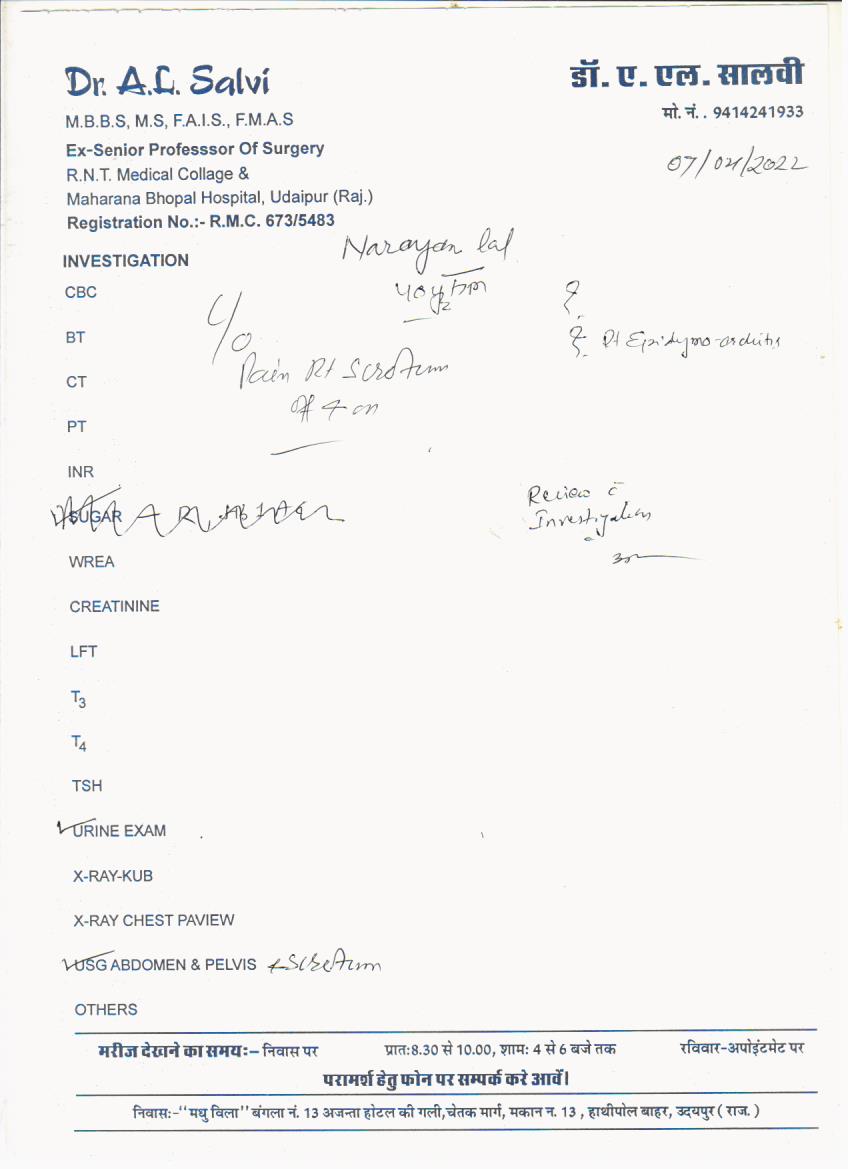 Dr. A.L. Salvi
डॉ. ए. एल. सालवी
M.B.B.S, M.S, F.A.I.S., F.M.A.S
मो. नं. . 9414241933
Ex-Senior Professsor Of Surgery
R.N.T. Medical Collage &
07/04/2022
Maharana Bhopal Hospital, Udaipur (Raj.)
Registration No.:- R.M.C. 673/5483
Narayan lal
INVESTIGATION
CBC
40y
C/O
BT
Rt Epidymo-orchitis
Pain Rt Scrotum
CT
off & on
PT
INR
Review c
SUGAR
Investigations
WREA
CREATININE
LFT
T3
T4
TSH
URINE EXAM
X-RAY-KUB
X-RAY CHEST PAVIEW
USG ABDOMEN & PELVIS + Scrotum
OTHERS
मरीज देखने का समयः– निवास पर प्रातः8.30 से 10.00, शामः 4 से 6 बजे तक रविवार-अपोइंटमेट पर
परामर्श हेतु फोन पर सम्पर्क करे आवें।
निवासः-“मधु विला” बंगला नं. 13 अजन्ता होटल की गली,चेतक मार्ग, मकान न. 13 , हाथीपोल बाहर, उदयपुर ( राज. )